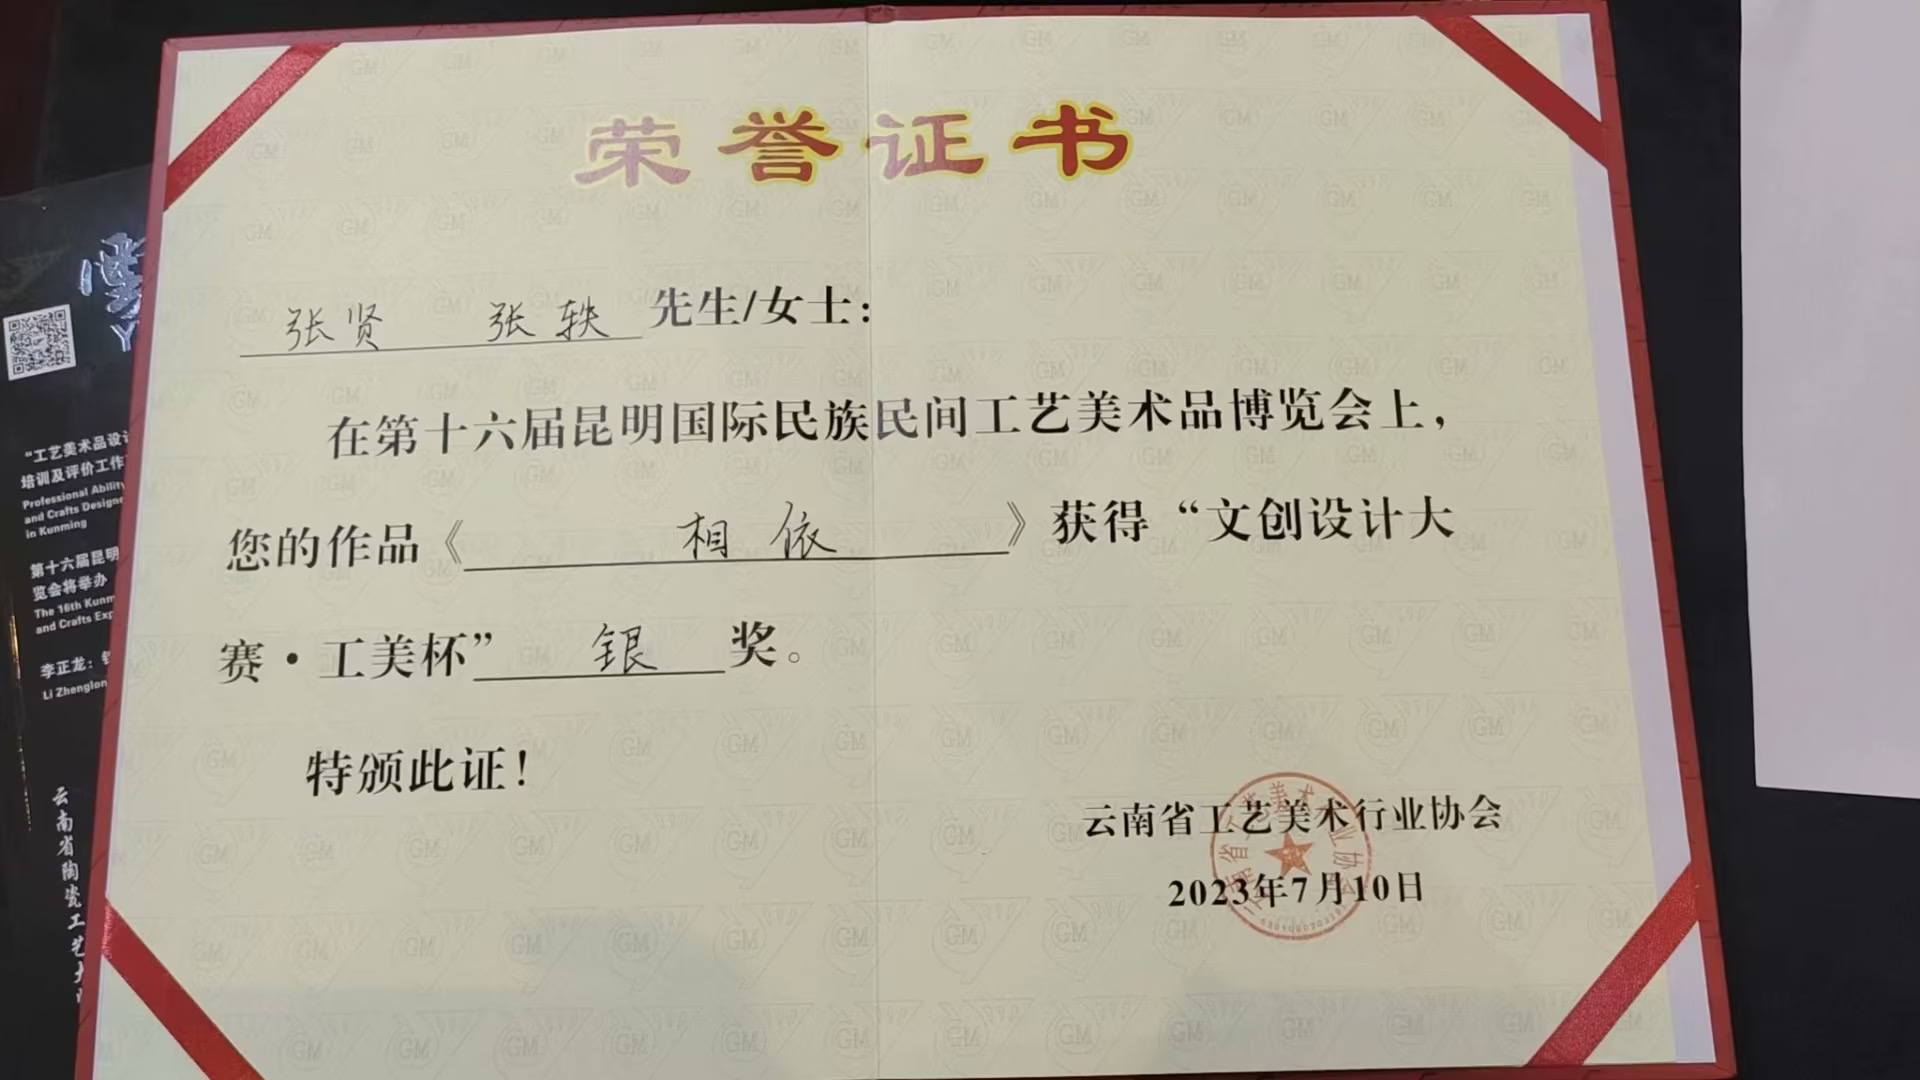 荣誉证书
张贤 张轶 先生/女士：
在第十六届昆明国际民族民间工艺美术品博览会上，
您的作品《 相依 》获得“文创设计大
赛·工美杯” 银 奖。
特颁此证！
云南省工艺美术行业协会
2023年7月10日
“工艺美术品设计
培训及评价工作
Professional Ability
and Crafts Designe
in Kunming
第十六届昆明
览会将举办
The 16th Kunm
and Crafts Exp
李正龙：
Li Zhenglon
云南省陶瓷工艺大
GM